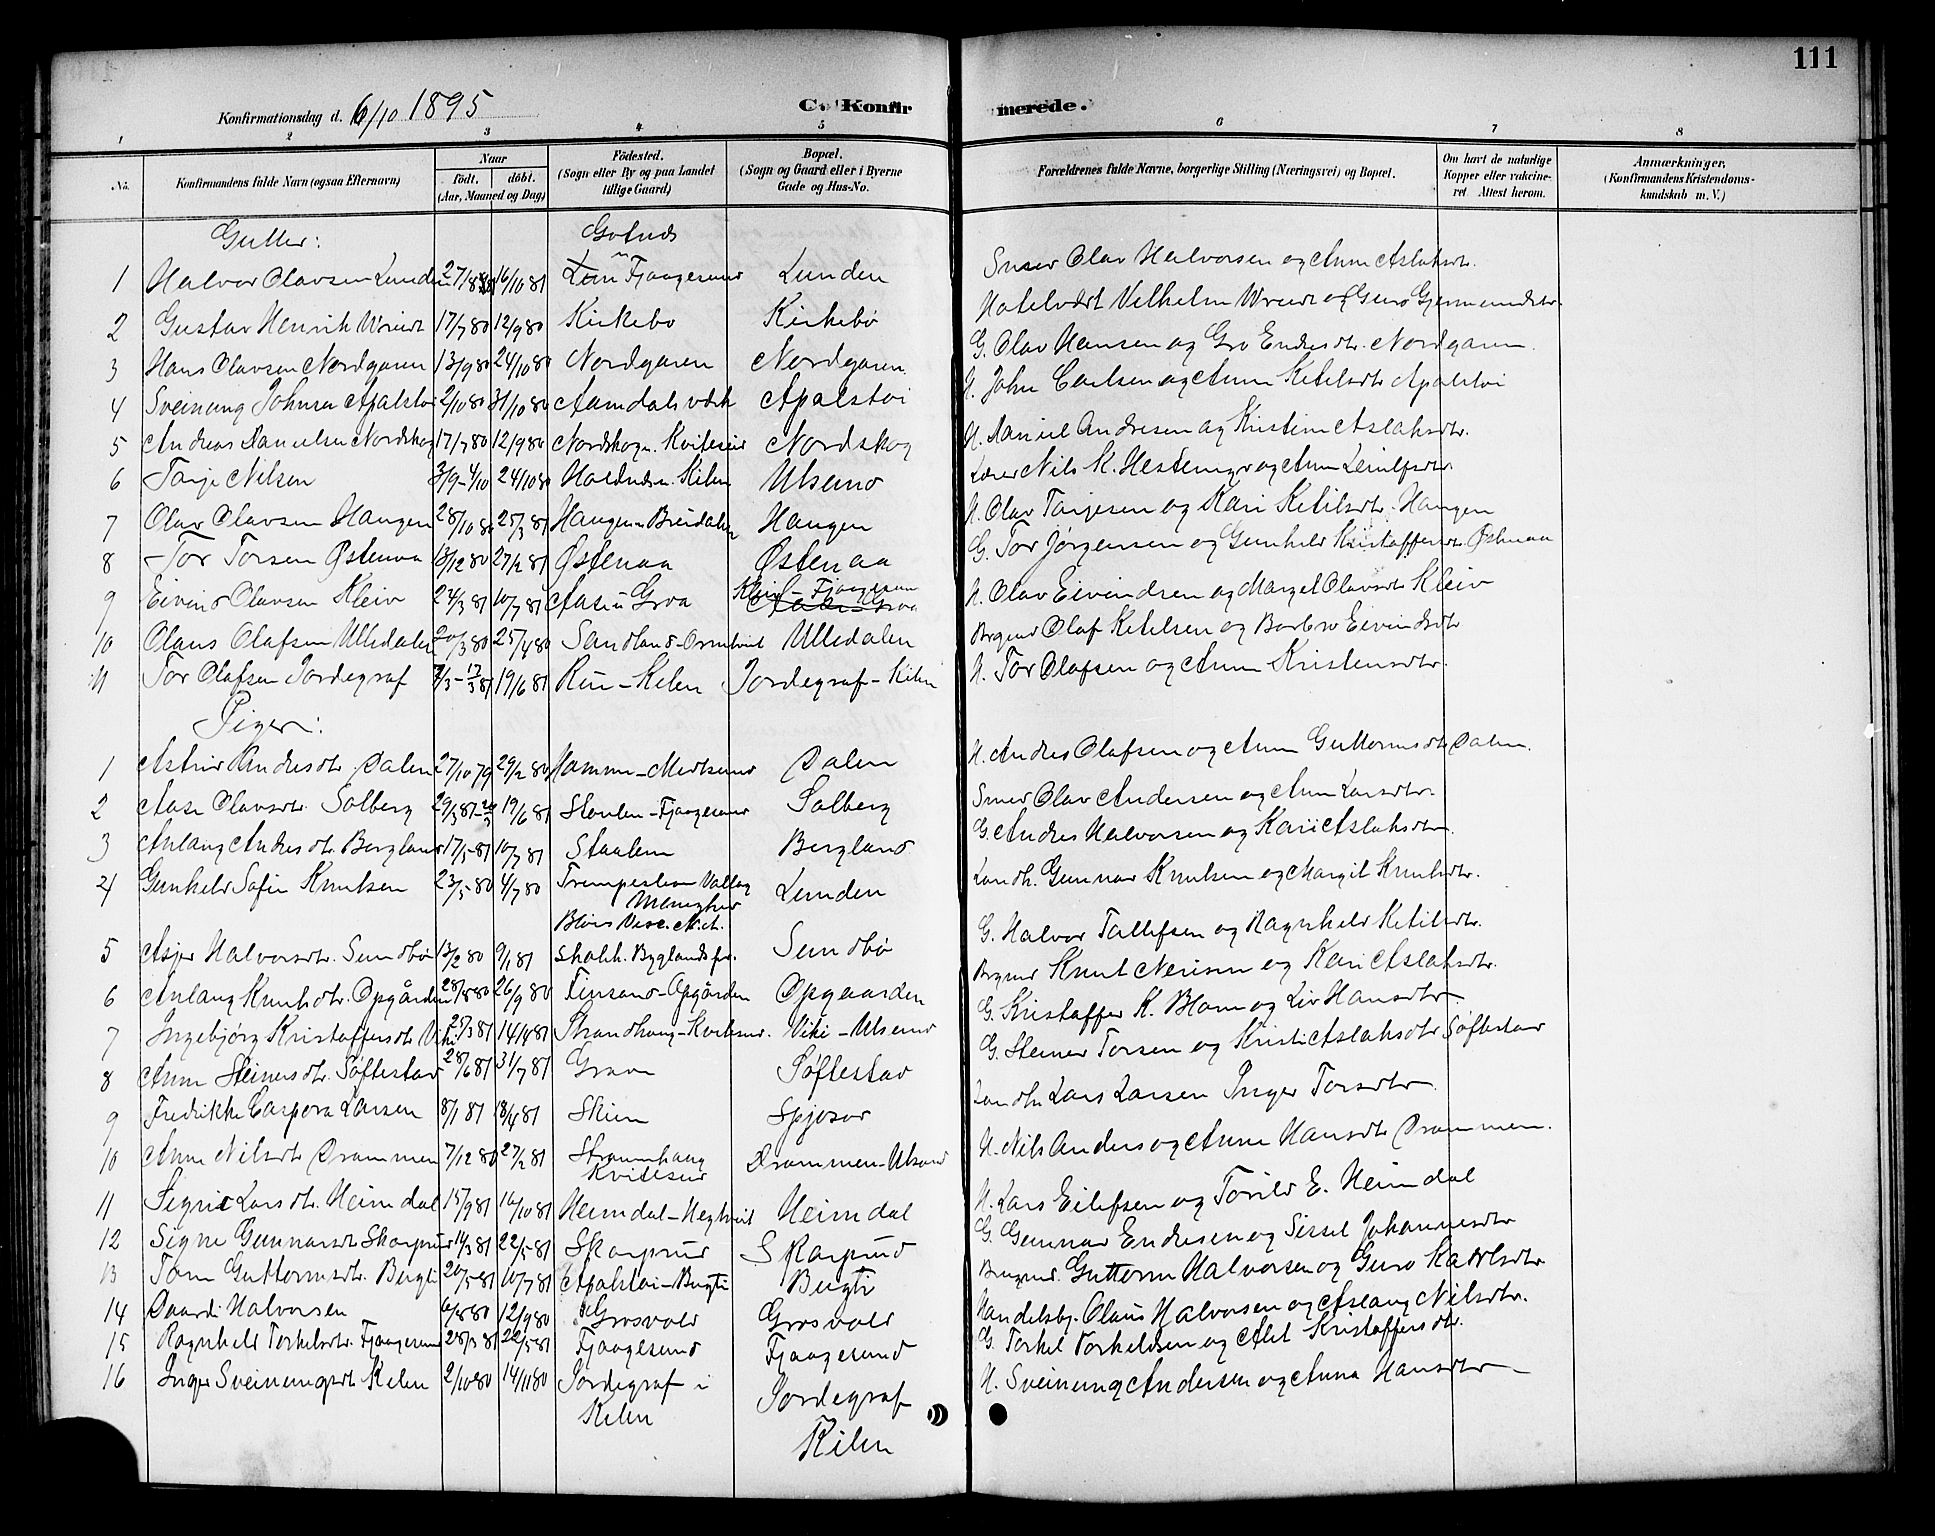 111
Konfirmationsdag d. 6/10 1895
C. Konfir merede.
1 2 3 4 5 6 7 8
No. Konfirmandens fulde Navn (ogsaa Efternavn) Naar födt. döbt. (Aar, Maaned og Dag) Födested. (Sogn eller By og paa Landet tillige Gaard) Bopæl. (Sogn og Gaard eller i Byerne Gade og Hus-No. Forældrenes fulde Navne, borgerlige Stilling (Næringsvei) og Bopæl. Om havt de naturlige Kopper eller vakcineret Attest herom. Anmærkninger, (Konfirmandens Kristendomskundskab m. V.)
Gutter:
1 Halvor Olavsen Lunden 27/8 16/10 81 Fjaagesund Lunden Smed Olav Halvorsen og Anne Aslaksdtr.
2 Gustav Henrik Wriedt 17/7 80 12/9 80 Kirkebø Kirkebø Hotelvært Vilhelm Wriedt og Guro Gjermundsdtr.
3 Hans Olavsen Nordgaren 13/9 80 24/10 80 Nordgaren Nordgaren G. Olav Hansen og Gro Endresdtr. Nordgaren
4 Sveinung Johnsen Apalstøi 2/10 80 31/10 80 Aamdals værk Apalstøi H. John Carlsen og Anne Ketilsdtr. Apalstøi
5 Andreas Danielsen Nordskog 17/7 80 12/9 80 Nordskogn. Kviteseid Nordskog H. Daniel Andresen og Kristine Aslaksdtr.
6 Tarje Nilsen 3/9 - 4/10 24/10 80 Kilen Utsund Lærer Nils K. Hestenger og Anne Leiulfsdtr.
7 Olav Olavsen Haugen 28/10 80 25/3 81 Haugen - Breidalen Haugen H. Olav Tarjesen og Kari Ketilsdtr. Haugen
8 Tor Torsen Østenaa 13/12 80 27/2 81 Østenaa Østenaa G. Tor Jørgensen og Gunhild Kristoffersdtr. Østenaa
9 Eivind Olavsen Kleiv 24/3 81 10/7 81 Aase i Groa Kleiv - Fjaagesun H. Olav Eivindsen og Margit Olavsdtr. Kleiv
10 Olaus Olafsen Ulledalen 20/3 80 25/4 80 Sandland - Ulledalen Bygmd Olaf Ketilsen og Barbro Eivindsdtr
11 Tor Olafsen Jordegraf 7/3 - 17/3 81 19/6 81 Rui - Kilen Jordegraf - Kilen H. Tor Olafsen og Anne Kristensdtr.
Piger:
1 Astrid Andresdtr. Dalen 27/10 79 29/2 80 Hamme - Dalen H. Andres Olafsen og Anne Guttormsdtr. Dalen.
2 Aase Olavsdtr. Solberg 29/3 81 19/6 81 - Fjaagesund Solberg Smed Olav Andersen og Anne Larsdtr.
3 Anlaug Andresdtr. Bergland 17/5 - 81 10/7 81 Staalem Bergland G. Andres Halvorsen og Kari Aslaksdtr.
4 Gunhild Sofie Knutsen 23/5 - 80 4/7 80 Menighed Lunden Landh. Gunnar Knutsen og Margit Knutsdtr.
5 Halvorsdtr. Sundbø 13/2 80 9/1 81 Skohh. Byglandsfr. Sundbø G. Halvor Tallefsen og Ragnhild Ketilsdtr.
6 Anlaug Knutsdtr. Opgården 28/8 80 26/9 80 - Opgården Opgaarden Bygmd Knut Nerisen og Kari Aslaksdtr.
7 Ingebjørg Kristoffersdtr Viki 25/3 81 14/4 81 Strandhaug - Kviteseid. Viki - Utsund G. Kristoffer K. Blom og Liv Hansdtr
8 Anne Steinersdtr. Søftestad 28/6 81 31/7 81 Søftestad G. Steiner Torsen og Kristi Aslaksdtr Søftestad
9 Fredrikke Caspora Larsen 8/1 81 18/4 81 Skien Spjosod Landh. Lars Larsen Inger Torsdtr
10 Anne Nilsdtr Drammen 7/12 80 27/2 81 Kviteseid Drammen - Utsund H. Nils Anders og Anne Hansdtr Drammen.
11 Sigrid Larsdtr. Heimdal 15/9 81 16/10 81 Heimdal - Heimdal H. Lars Eilefsen og Torild E. Heimdal
12 Signe Gunnarsdtr Skarprud 14/3 81 22/5 81 Skarprud Skarprud G. Gunnar Endresen og Sissel Johannesdtr
13 Tone Guttormsdtr. Bugti 20/5 - 81 10/7 81 Apalstøi - Bugti Bugti Guttorm Halvorsen og Guro
14 Daardi Halvorsen 6/8 80 12/9 80 Grosvold Grosvold Handelsby. Olaus Halvorsen og Aslaug Nilsdtr.
15 Ragnhild Torkelsdtr. Fjaagesund 28/3 81 22/5 81 Fjaagesund Fjaagesund G. Torkel Torkeldsen og Alet Kristoffersdtr.
16 Inger Sveinungsdt Kilen 2/10 80 14/11 80 Jordegraf i Kilen Jordegraf Kilen H. Sveinung Andersen og Anna Hansdtr